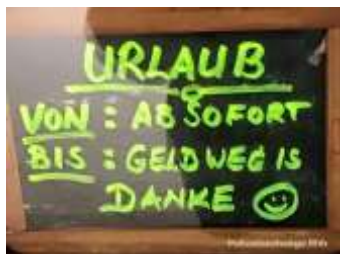 URLAUB
VON : AB SOFORT
BIS : GELD WEG IS
DANKE ☺